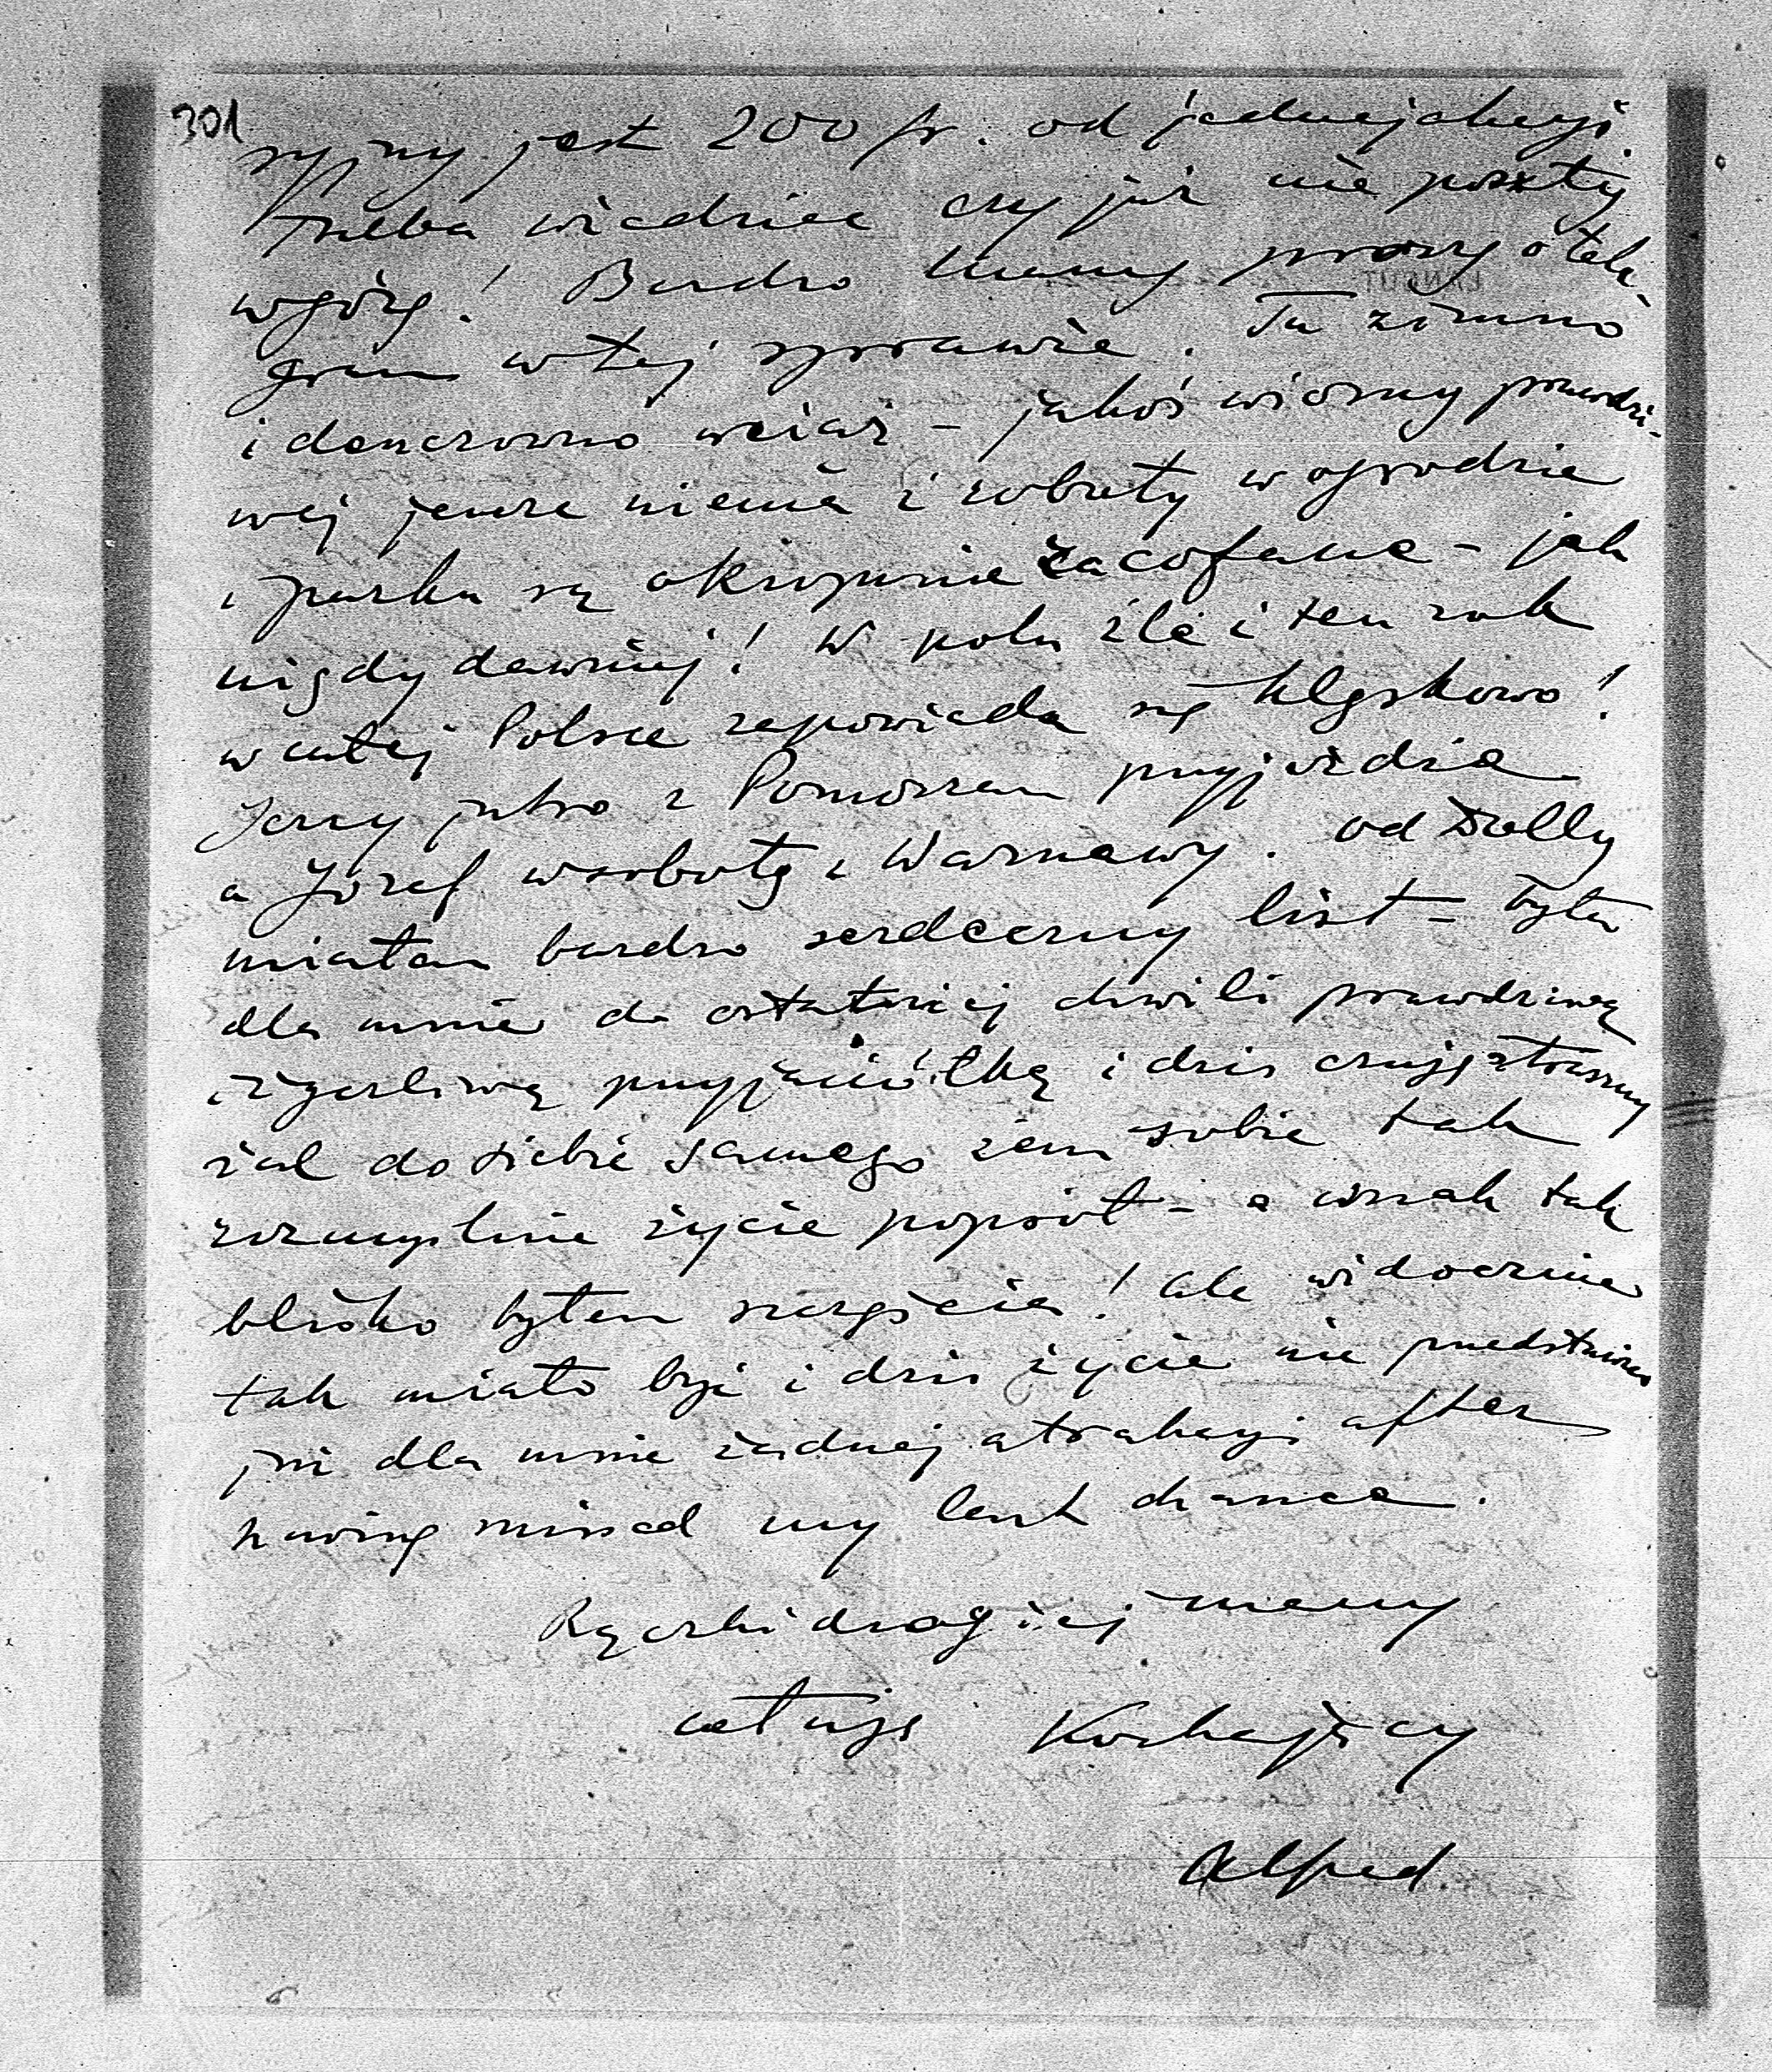 301
syjny jest 200 fr. od jednej akcyi
Trzeba wiedzieć czy już nie poszły
w górę! Bardzo Mamy proszę o tele-
gram w tej sprawie. Tu zimno
i deszczowno wciąż - jakoś wiosny prawdzi-
wej jeszcze niema i roboty w ogrodzie
i parku są okropnie zacofane - jak
nigdy dawniej! W polu źle i ten rok
w całej Polsce zapowiada się klęskowo!
Jerzy jutro z Pomorzan przyjeżdża
a Józef w sobotę z Warszawy. od Dolly
miałam bardzo serdeczny list = była
dla mnie do ostatniej chwili prawdziwą
i życzliwą przyjaciółką i dziś czuję straszny
żal do siebie samego żem sobie tak
rozmyślnie życie popsuł - a wszak tak
blisko byłem szczęścia! ale widocznie
tak miało być i dziś życie nie przedstawia
już dla mnie żadnej atrakcyi after
having missed my last chance.
Rączki drogiej mamy
całuję Kochający
Alfred.